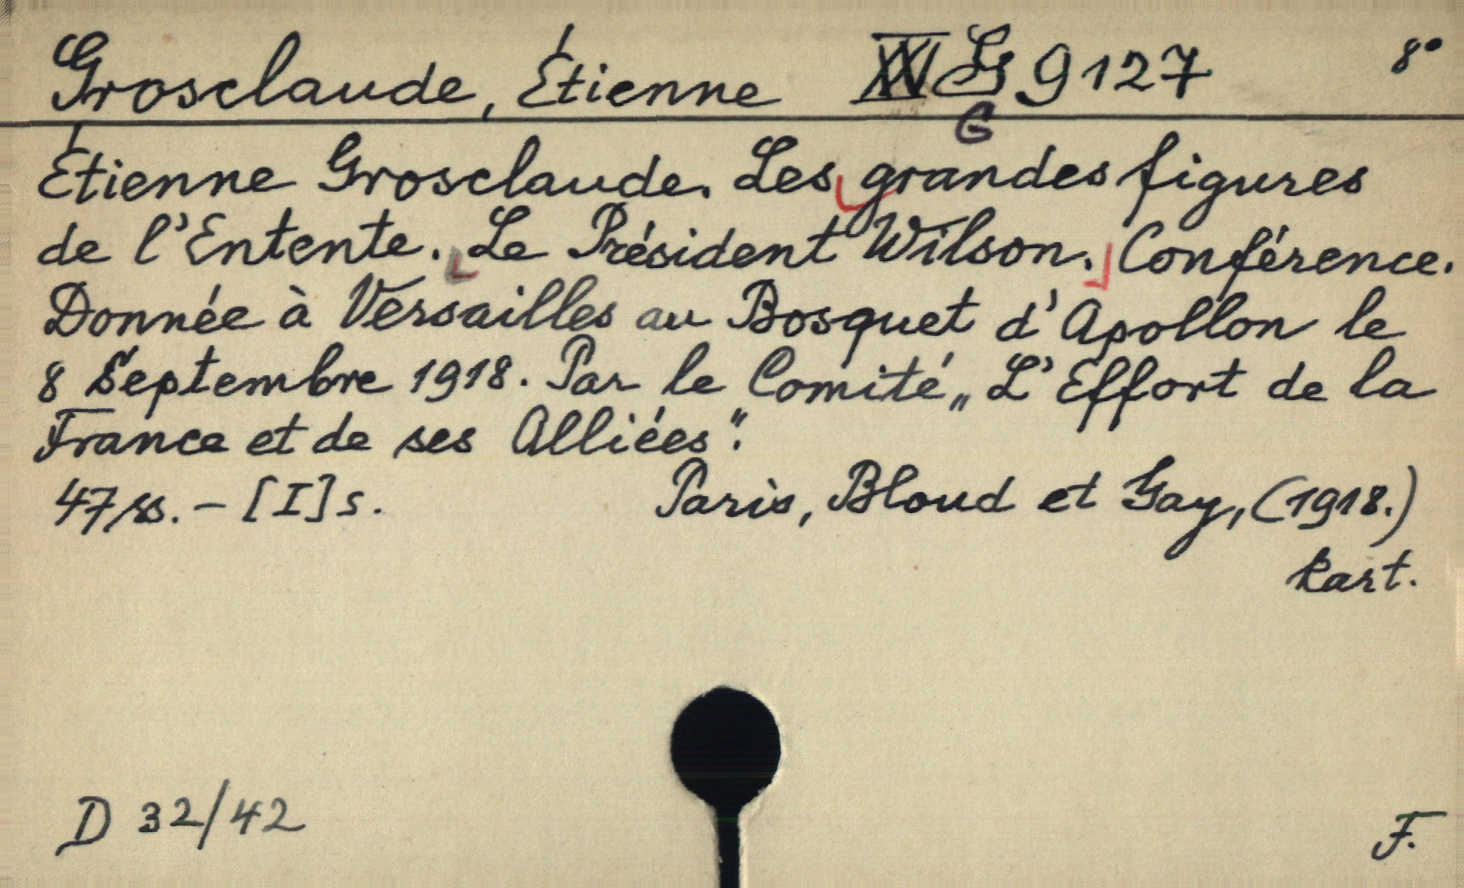 Grosclaude, Étienne XXI G 9127 8°
G
Étienne Grosclaude. Les grandes figures
de l'Entente. Le Président Wilson. Conférence.
Donnée à Versailles au Bosquet d'Apollon le
8 Septembre 1918. Par le Comité „L'Effort de la
France et de ses Alliées".
47 ss. – [I] s. Paris, Bloud et Gay, (1918.)
kart.
D 32/42 F.